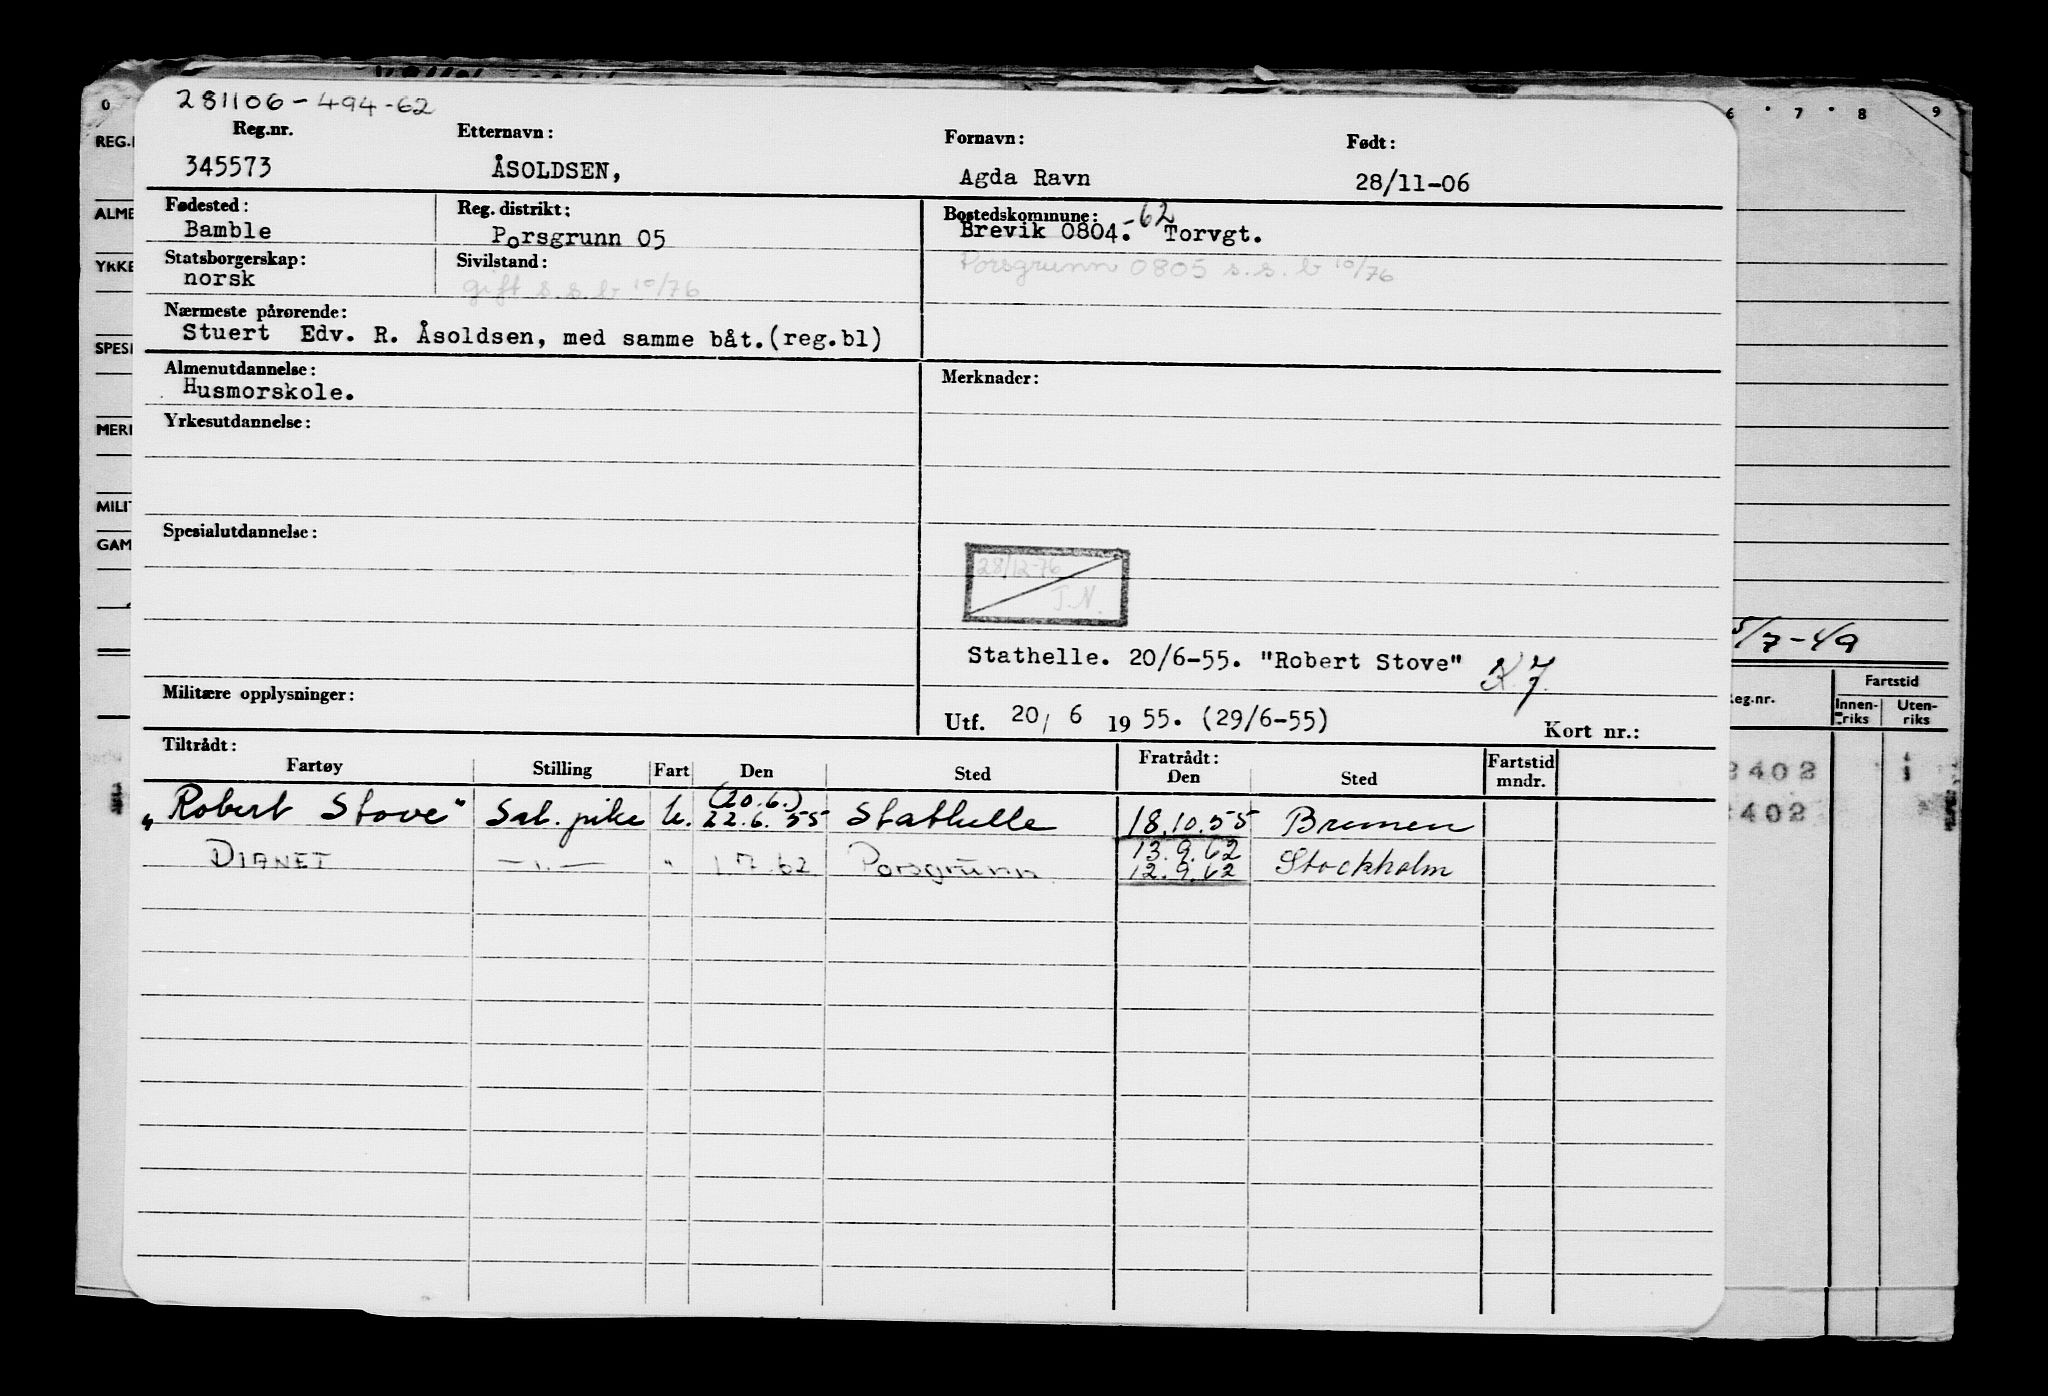 281106-494-62
Reg.nr. Etternavn: Fornavn: Født:
345573 ÅSOLDSEN, Agda Ravn 28/11-06
Fødested: Reg. distrikt: Bostedskommune:
Bamble Porsgrunn 05 Brevik 0804.-62 Torvgt.
Statsborgerskap: Sivilstand: Porsgrunn 0805 s.s.b 10/76
norsk gift s.s.b 10/76
Nærmeste pårørende:
Stuert Edv. R. Åsoldsen, med samme båt.(reg.bl)
Almenutdannelse: Merknader:
Husmorskole.
Yrkesutdannelse:
Spesialutdannelse:
28/12-76
J.N.
Stathelle. 20/6-55. "Robert Stove"
Militære opplysninger:
Utf. 20/ 6 1955. (29/6-55) Kort nr.:
Tiltrådt: Fratrådt:
Fartøy Stilling Fart Den Sted Den Sted Fartstid mndr.
(20.6.)
„Robert Stove" Sal. pike U. 22.6.55 Stathelle 18.10.55 Bremen
13.9.62
DIANET —"— " 1.7.62 Porsgrunn 12.9.62 Stockholm
0 6 7 8 9
REG.
ALME
YRKE
SPESI
MERI
MILIT
GAM
5/7-49
eg.nr. Fartstid
Innen-riks Uten-riks
2402 1
402